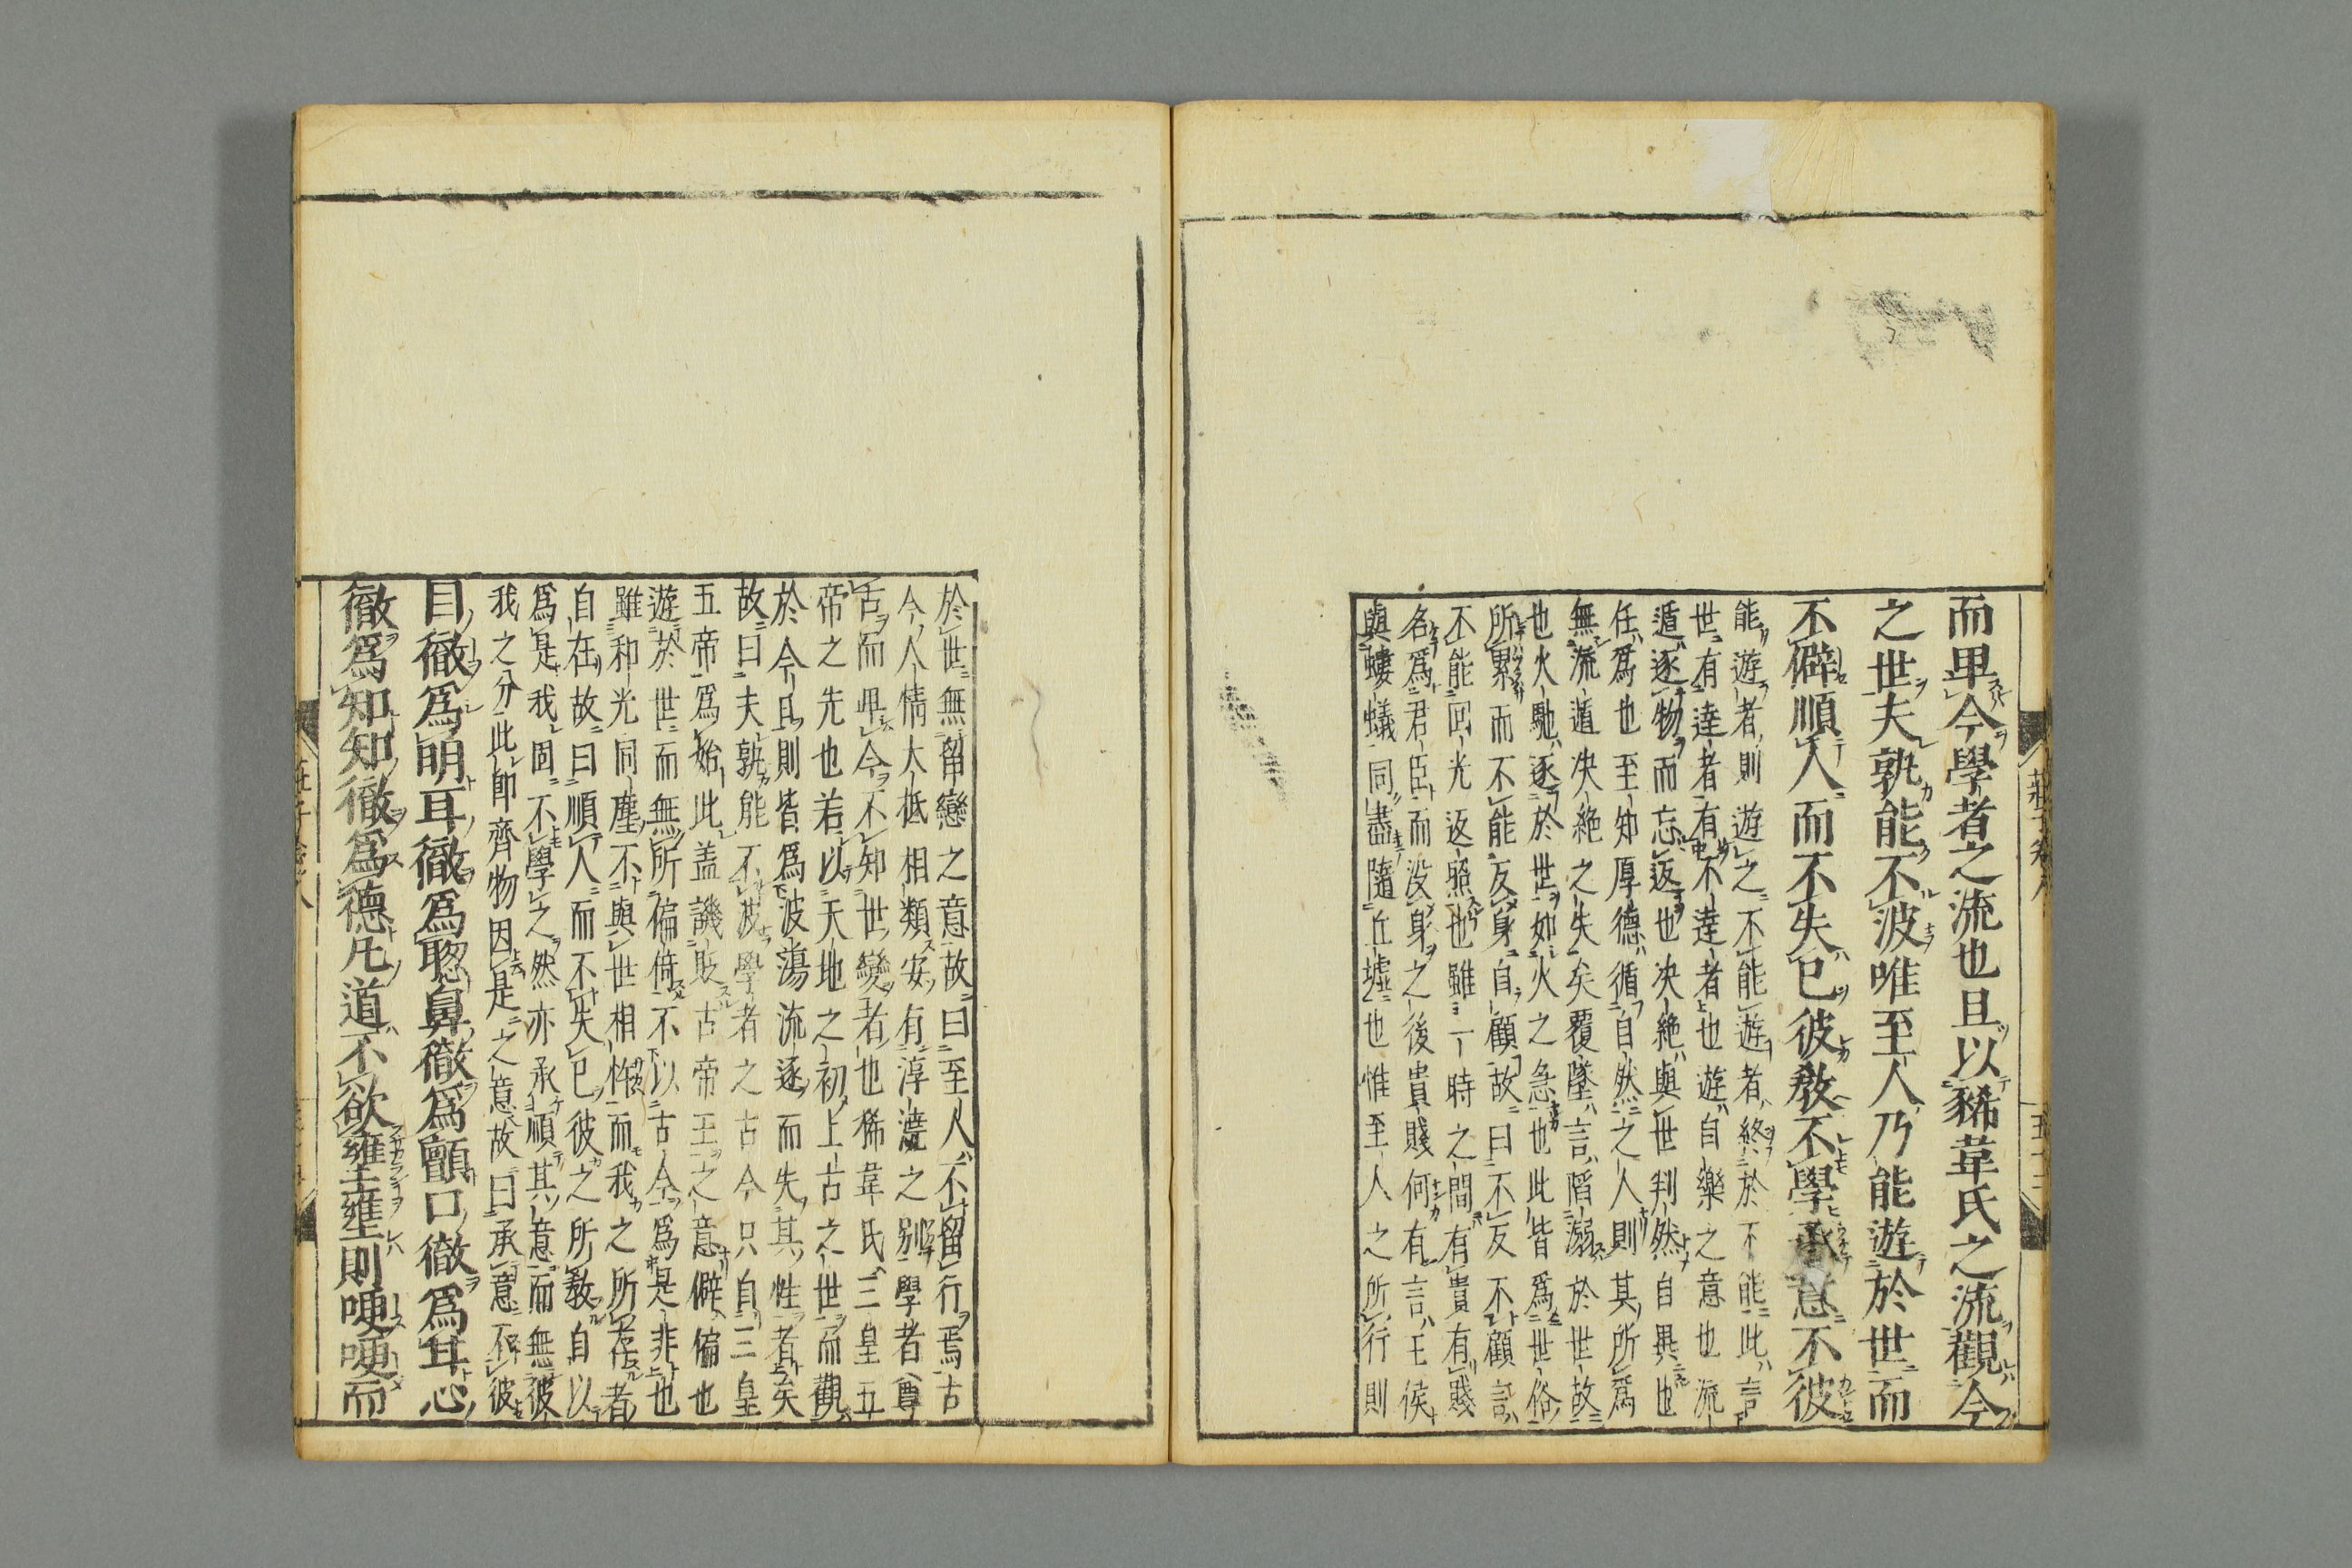 而卑今學者之流也且以豨韋氏之流觀今
之世夫孰能不波唯至人乃能遊於世而
不僻順人而不失已彼敎不學承意不彼
能遊者則遊之不能遊者終於不能此言
世有達者有不達者也遊自樂之意也流
遁逐物而忘返也决絶與世判然自異也
任爲也至知厚德循自然之人則其所爲
無流遁决絶之失矣覆墜言陷溺於世故
也火馳逐於世如火之急也此皆爲世俗
所累而不能反身自顧故曰不反不顧言
不能回光返照也雖一時之間有貴有賤
名爲君臣而没身之後貴賤何有言王侯
與螻蟻同盡隨丘墟也惟至人之所行則
於世無留戀之意故曰至人不留行焉古
今人情大抵相類安有淳澆之別學者尊
古而卑今不知世變者也狶韋氏三皇五
帝之先也若以天地之初上古之世而觀
於今且則皆爲波蕩流逐而失其性者矣
故曰夫孰能不波學者之古今只自三皇
五帝爲始此盖譏貶古帝王之意僻偏也
遊於世而無所偏倚不以古今爲是非也
雖和光同塵不與世相忤而我之所存者
自在故曰順人而不失已彼之所敎自以
爲是我固不學之然亦承順其意而無彼
我之分此即齊物因是之意故曰承意不彼
目徹爲明耳徹爲聰鼻徹爲顫口徹爲甘心
徹爲知知徹爲德凡道不欲壅壅則哽哽而